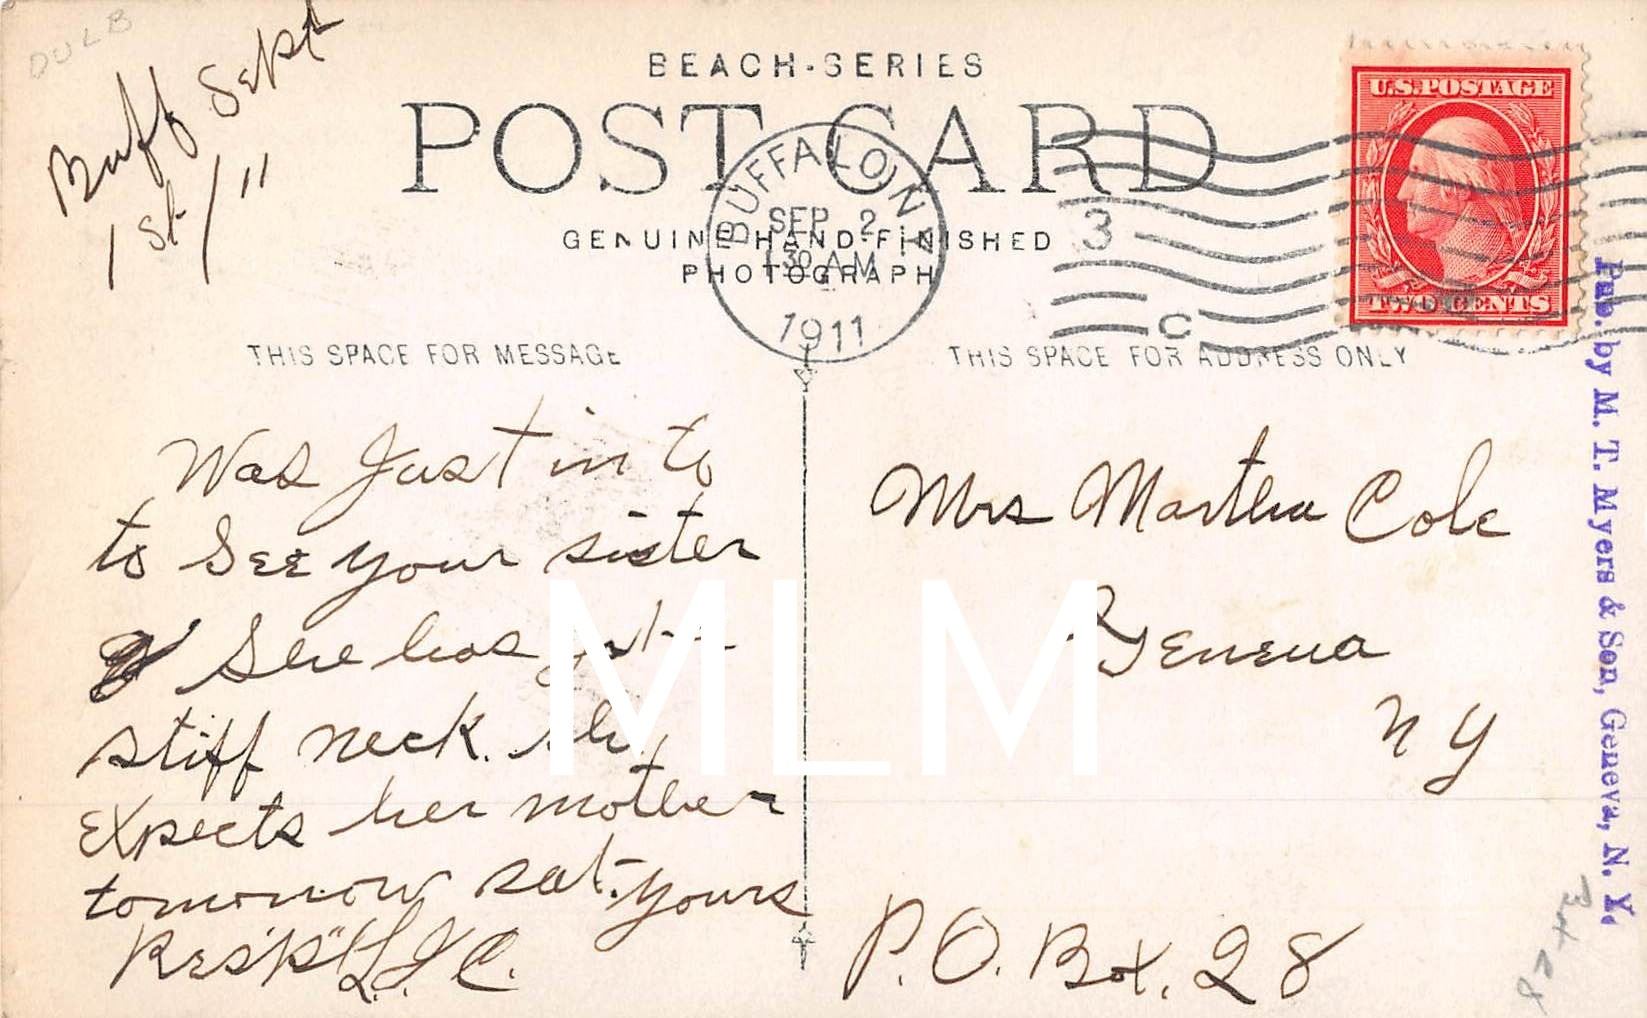 DULB
Buff Sept
1st/11
BEACH-SERIES
POST CARD
GENUINE HAND-FINISHED
PHOTOGRAPH
BUFFALO, N.Y.
SEP 2
1 30 AM
1911
3
C
U.S. POSTAGE
TWO CENTS
THIS SPACE FOR MESSAGE
THIS SPACE FOR ADDRESS ONLY
Was Just in to
to See your sister
She has got a
stiff neck. she
Expects her mother
tomorrow sat. yours
Resp L.J.C.
Mrs Martha Cole
Geneva
N Y
P.O. Box. 28
Pub. by M. T. Myers & Son, Geneva, N. Y.
MLM